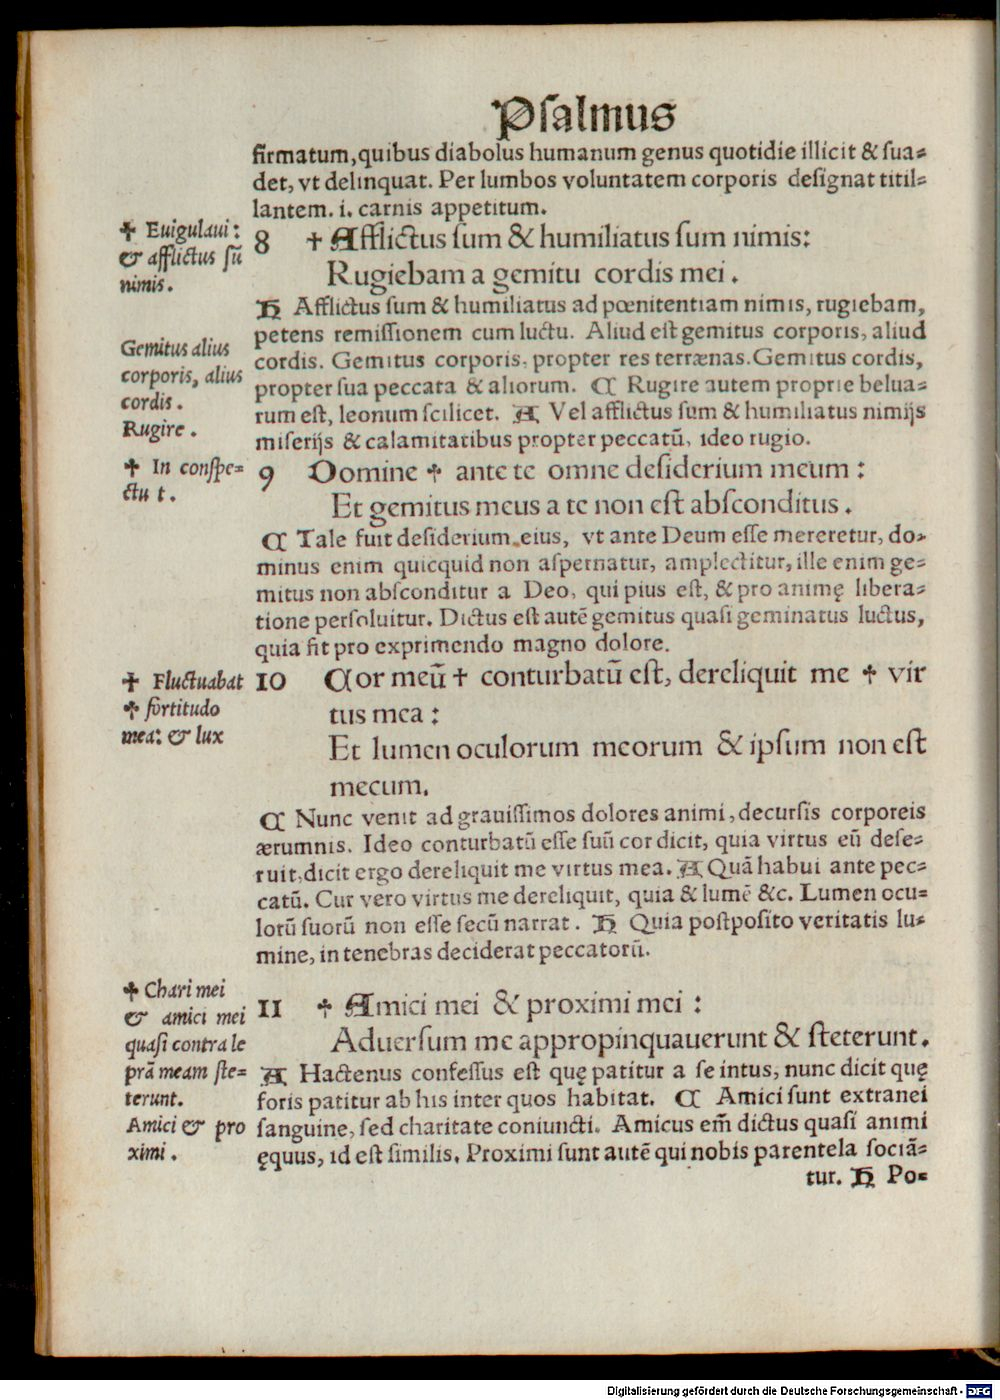 Psalmus
firmatum, quibus diabolus humanum genus quotidie illicit & sua=
det, vt delinquat. Per lumbos voluntatem corporis designat titil=
lantem. i. carnis appetitum.
✝ Euigulaui:
& afflictus sū
nimis.
8 ✝ Afflictus sum & humiliatus sum nimis:
Rugiebam a gemitu cordis mei.
H Afflictus sum & humiliatus ad pœnitentiam nimis, rugiebam,
petens remissionem cum luctu. Aliud est gemitus corporis, aliud
cordis. Gemitus corporis, propter res terrænas. Gemitus cordis,
propter sua peccata & aliorum. C Rugire autem proprie belua=
rum est, leonum scilicet. A Vel afflictus sum & humiliatus nimijs
miserijs & calamitatibus propter peccatū, ideo rugio.
Gemitus alius
corporis, alius
cordis.
Rugire.
✝ In conspe=
ctu t.
9 Domine ✝ ante te omne desiderium meum:
Et gemitus meus a te non est absconditus.
C Tale fuit desiderium eius, vt ante Deum esse mereretur, do=
minus enim quicquid non aspernatur, amplectitur, ille enim ge=
mitus non absconditur a Deo, qui pius est, & pro animę libera=
tione persoluitur. Dictus est autē gemitus quasi geminatus luctus,
quia fit pro exprimendo magno dolore.
✝ Fluctuabat
✝ fortitudo
mea: & lux
10 Cor meū ✝ conturbatū est, dereliquit me ✝ vir
tus mea:
Et lumen oculorum meorum & ipsum non est
mecum.
C Nunc venit ad grauissimos dolores animi, decursis corporeis
ærumnis. Ideo conturbatū esse suū cor dicit, quia virtus eū dese=
ruit, dicit ergo dereliquit me virtus mea. A Quā habui ante pec=
catū. Cur vero virtus me dereliquit, quia & lumē &c. Lumen ocu=
lorū suorū non esse secū narrat. H Quia postposito veritatis lu=
mine, in tenebras deciderat peccatorū.
✝ Chari mei
& amici mei
quasi contra le
prā meam ste=
terunt.
Amici & pro
ximi.
11 ✝ Amici mei & proximi mei:
Aduersum me appropinquauerunt & steterunt.
A Hactenus confessus est quę patitur a se intus, nunc dicit quę
foris patitur ab his inter quos habitat. C Amici sunt extranei
sanguine, sed charitate coniuncti. Amicus em̄ dictus quasi animi
ęquus, id est similis. Proximi sunt autē qui nobis parentela sociā=
tur. H Po=
Digitalisierung gefördert durch die Deutsche Forschungsgemeinschaft - DFG